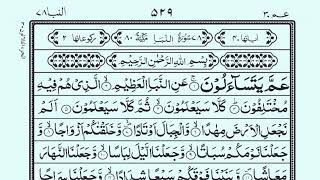 النبا ٧٨
٥٢٩
عم ٣٠
اٰیاتها ٤٠ ٧٨ سُوْرَةُ النَّبَاِ مَكِّيَّةٌ ٨٠ رکوعاتها ٢
بِسْمِ اللّٰهِ الرَّحْمٰنِ الرَّحِيْمِ
عَمَّ يَتَسَآءَلُوْنَ ۝ عَنِ النَّبَاِ الْعَظِيْمِ ۝ الَّذِيْ هُمْ فِيْهِ
مُخْتَلِفُوْنَ ۝ كَلَّا سَيَعْلَمُوْنَ ۝ ثُمَّ كَلَّا سَيَعْلَمُوْنَ ۝ اَلَمْ
نَجْعَلِ الْاَرْضَ مِهٰدًا ۝ وَّالْجِبَالَ اَوْتَادًا ۝ وَّخَلَقْنٰكُمْ اَزْوَاجًا ۝ وَّ
جَعَلْنَا نَوْمَكُمْ سُبَاتًا ۝ وَّجَعَلْنَا الَّيْلَ لِبَاسًا ۝ وَّجَعَلْنَا النَّهَارَ
مَعَاشًا ۝ وَّبَنَيْنَا فَوْقَكُمْ سَبْعًا شِدَادًا ۝ وَّجَعَلْنَا سِرَاجًا